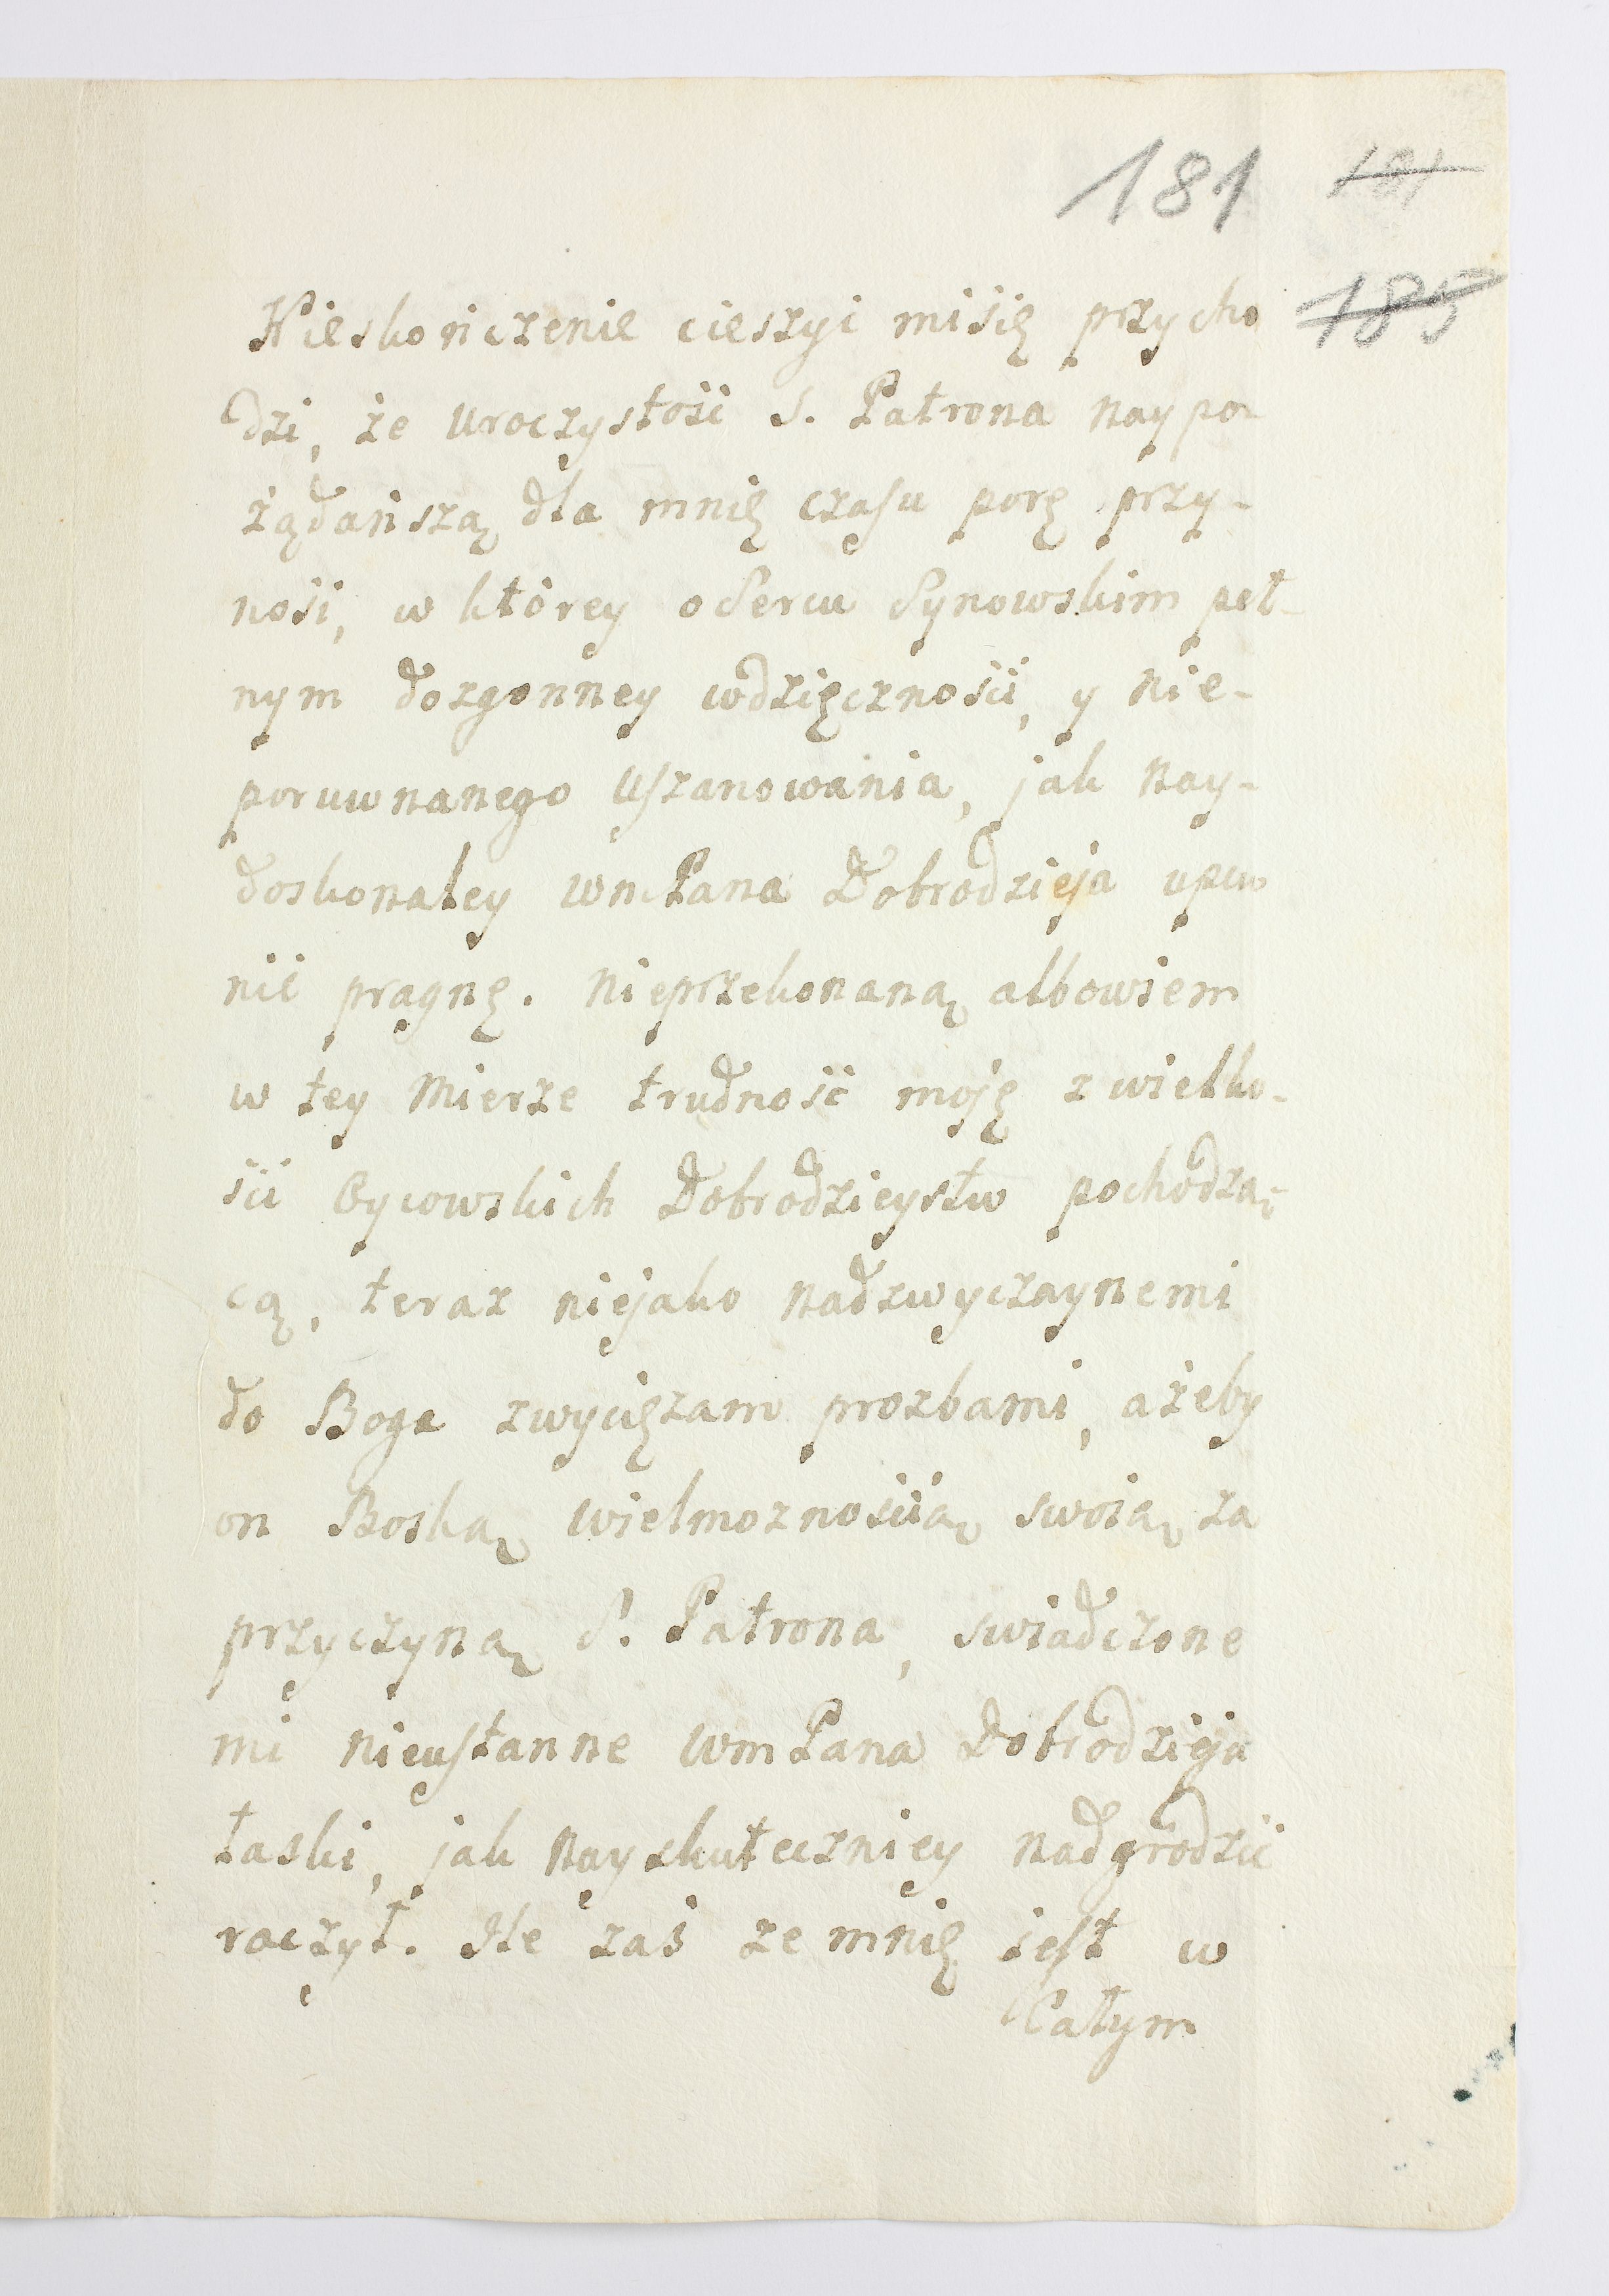 181 181
185
Nieskończenie cieszyć misię przycho
dzi, że Uroczystość S. Patrona naypo
żądańszą dla mnię czasu porę przy-
nosi, w którey o Sercu Synowskim peł-
nym dozgonney wdzięczności, y nie-
poruwnanego Uszanowania, jak nay-
doskonaley WmPana Dobrodzieja upew
nić pragnę. Nieprzekonaną albowiem
w tey mierze trudność moję z wielko-
ści Oycowskich Dobrodzieystw pochodzą-
cą, teraz niejako nadzwyczaynemi
do Boga zwyciężam prozbami, ażeby
on Boską wielmoznoscią swoią za
przyczyną S. Patrona, swiadczone
mi nieustanne WmPana Dobrodzieja
łaski, jak nayskuteczniey nadgrodzić
raczył. Ile zaś ze mnię jest w
Całym